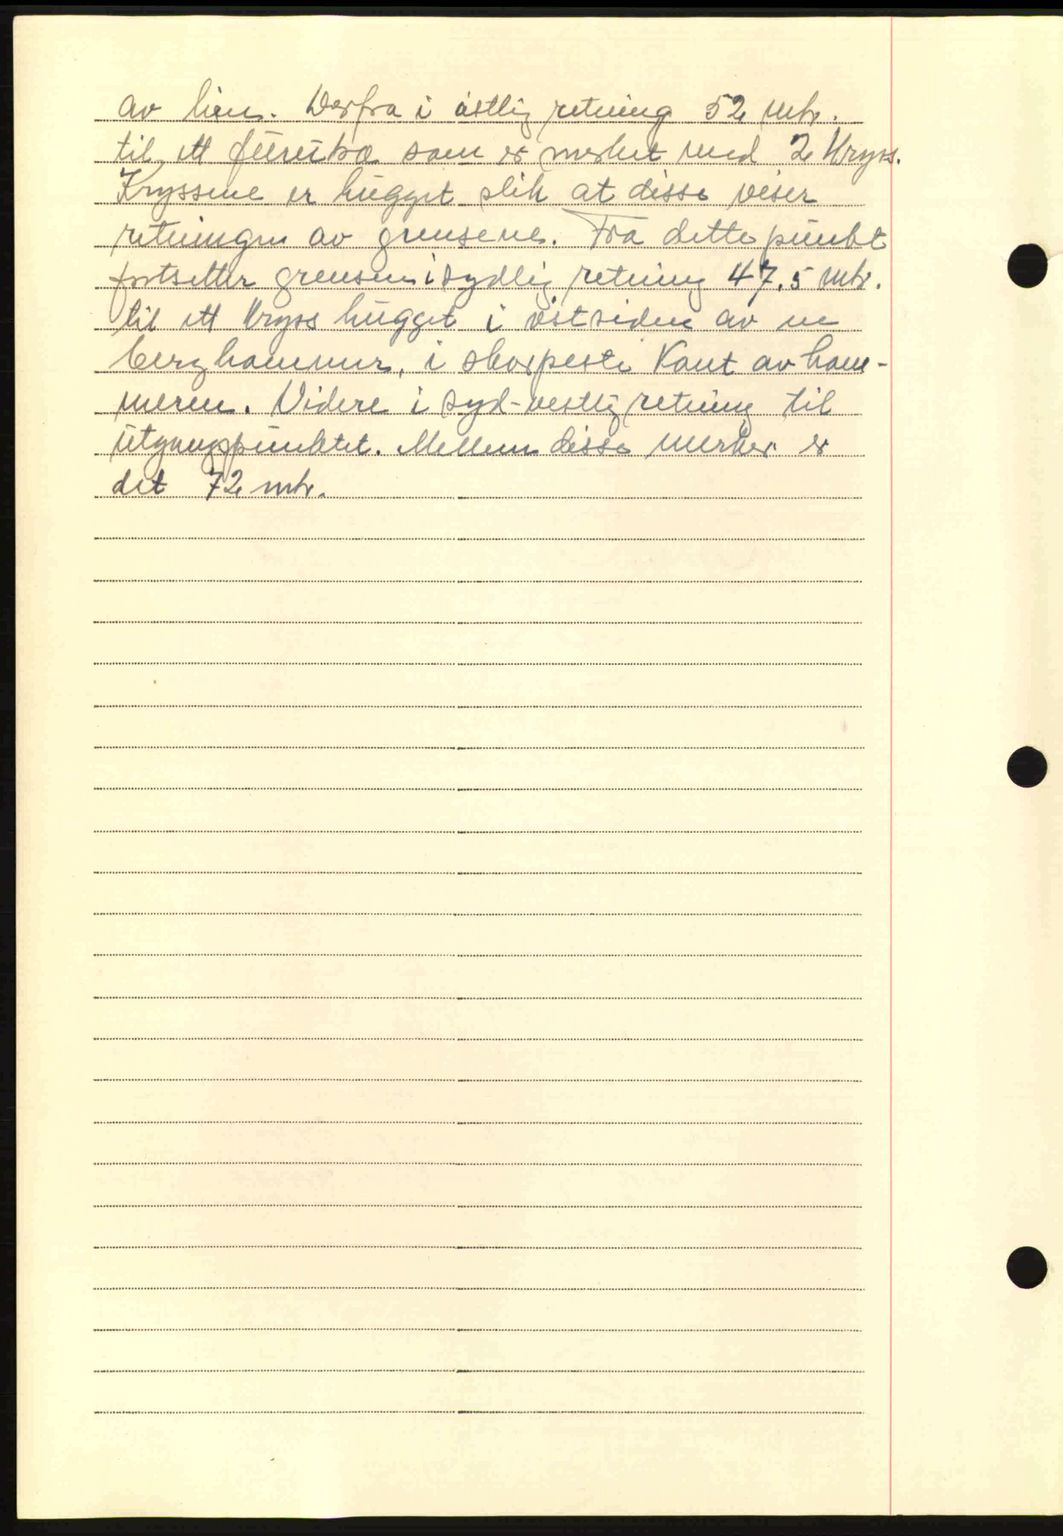 av lien. Derfra i østlig retning 52 mtr.
til ett furutræ som er merket med 2 kryss.
Kryssene er hugget slik at disse viser
retningen av grensene. Fra dette punkt
fortsetter grensen i sydlig retning 47,5 mtr.
til ett kryss hugget i østsiden av en
berghammer, i skarpeste kant av ham-
meren. Videre i syd-vestlig retning til
utgangspunktet. Mellem disse merker er
det 72 mtr.